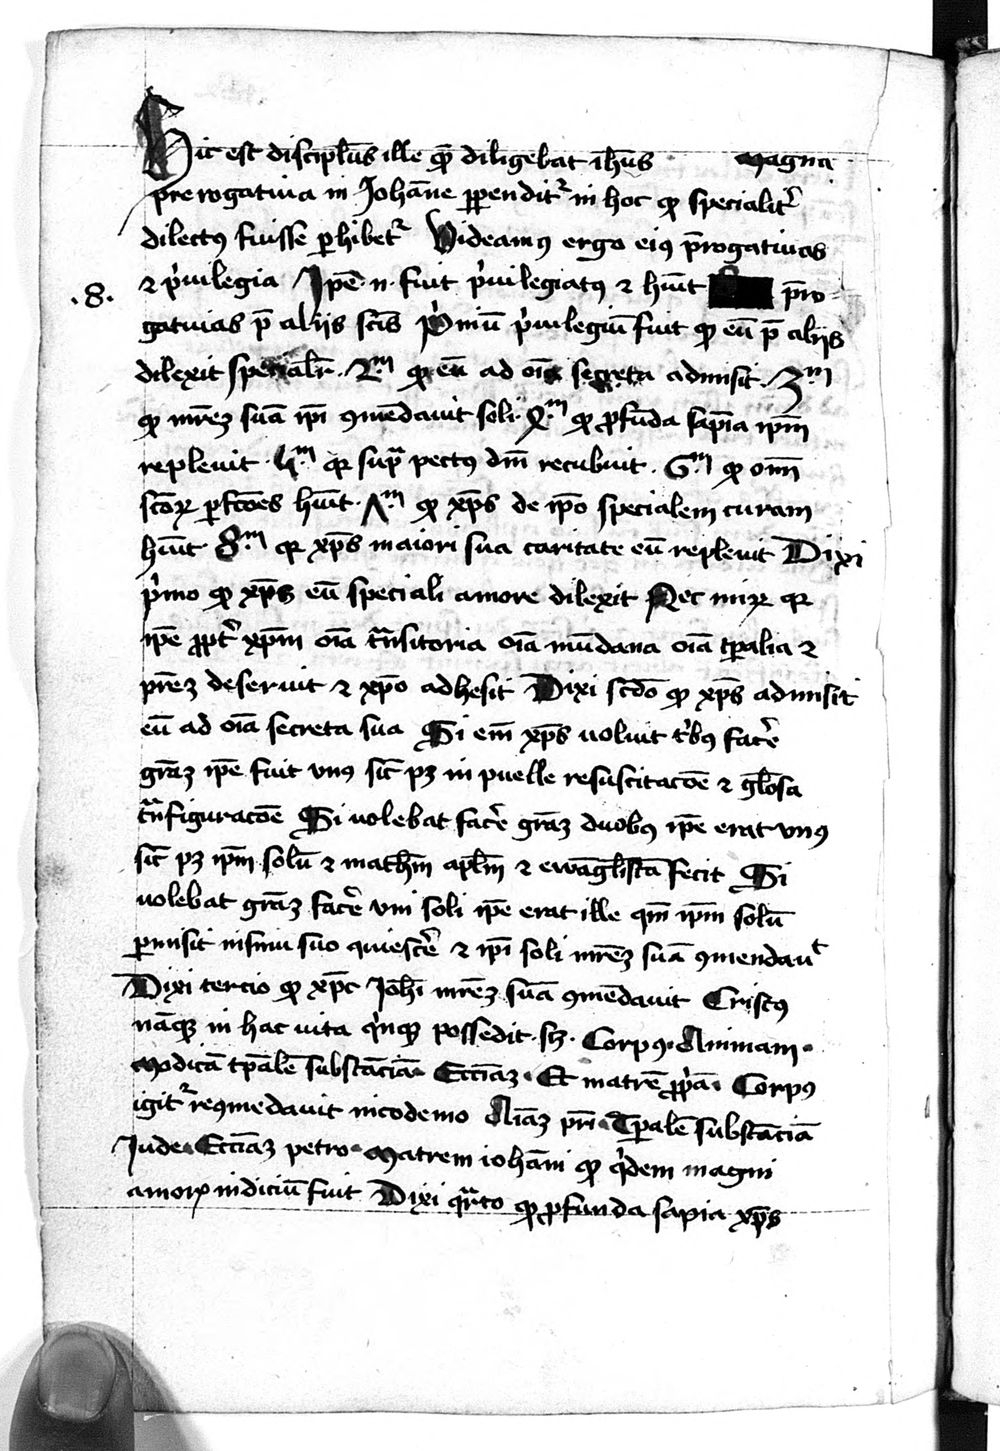 Hic est discipl̄us ille quē diligebat ih̄us magna
prerogatiua in Johāne ꝑpendit᷑ in hoc ꝙ specialit͛
dilectꝰ fuisse ꝑhibet᷑ Videamꝰ ergo eiꝰ p̄rogatiuas
⁊ pͥuilegia Ip̄e .n. fuit pͥuilegiatꝰ ⁊ hūit p̄ro-
.8.
gatiuas p̄ alijs sc̄is Pͥmū pͥuilegiū fuit ꝙ eū p̄ alijs
dilexit specialr̄ . 2.m ꝙ eū ad oīa secreta admisit . 3.m
ꝙ mr̄eꝫ suā ip̄i ꝯmēdauit soli . 4.m ꝙ ꝓfūda sapīa ip̄m
repleuit . 5.m qꝛ sup̄ pectꝰ dn̄i recubuit . 6.m ꝙ om̄i
sc̄oꝝ ꝑfcōes hūit . 7.m ꝙ xp̄s de ip̄o specialem curam
hūit 8.m qꝛ xp̄s maiori sua caritate eū repleuit Dixi
pͥmo ꝙ xp̄s eū speciali amore dilexit Nec miꝝ qꝛ
ip̄e ꝓpt͛ xp̄m oīa tᷓnsitoria oīa mūdana oīa tꝑalia ⁊
pr̄eꝫ deseruit ⁊ xp̄o adhesit Dixi scd̄o ꝙ xp̄s admisit
eū ad oīa secreta sua Si em̄ xp̄s uoluit tͥbꝰ fac̄e
gr̄aꝫ ip̄e fuit vnꝰ sic̄ pꝫ in puelle resuscitacōe ⁊ gl̄osa
tᷓnfiguracōe Si uolebat fac̄e gr̄aꝫ duobꝰ ip̄e erat vnꝰ
sic̄ pꝫ ip̄m solū ⁊ math̄m apl̄m ⁊ ewāgl̄istā fecit Si
uolebat gr̄aꝫ fac̄e vni soli ip̄e erat ille qm̄ ip̄m solū
ꝑmisit insinu suo quiesc̄e ⁊ ip̄i soli mr̄eꝫ suā ꝯmendauͭ
Dixi tercio ꝙ xp̄c Joh̄i mr̄eꝫ suā ꝯmēdauit Cristꝰ
nāqꝫ in hac uita qͥnqꝫ possedit . sꝫ . Corpꝰ . Animam .
Modicā tp̄alē substāciā . Ecc̄iaꝫ . Et matrē ꝓp̄ā . Corpꝰ
igit᷑ reꝯmedauit nicodemo Aīaꝫ pr̄i . Tꝑalē substāciā
Jude . Ecc̄iaꝫ petro . Matrem iohāni ꝙ qͥdem magni
amorꝭ indiciū fuit Dixi qᷓrto ꝙ ꝓfunda sapia xp̄s